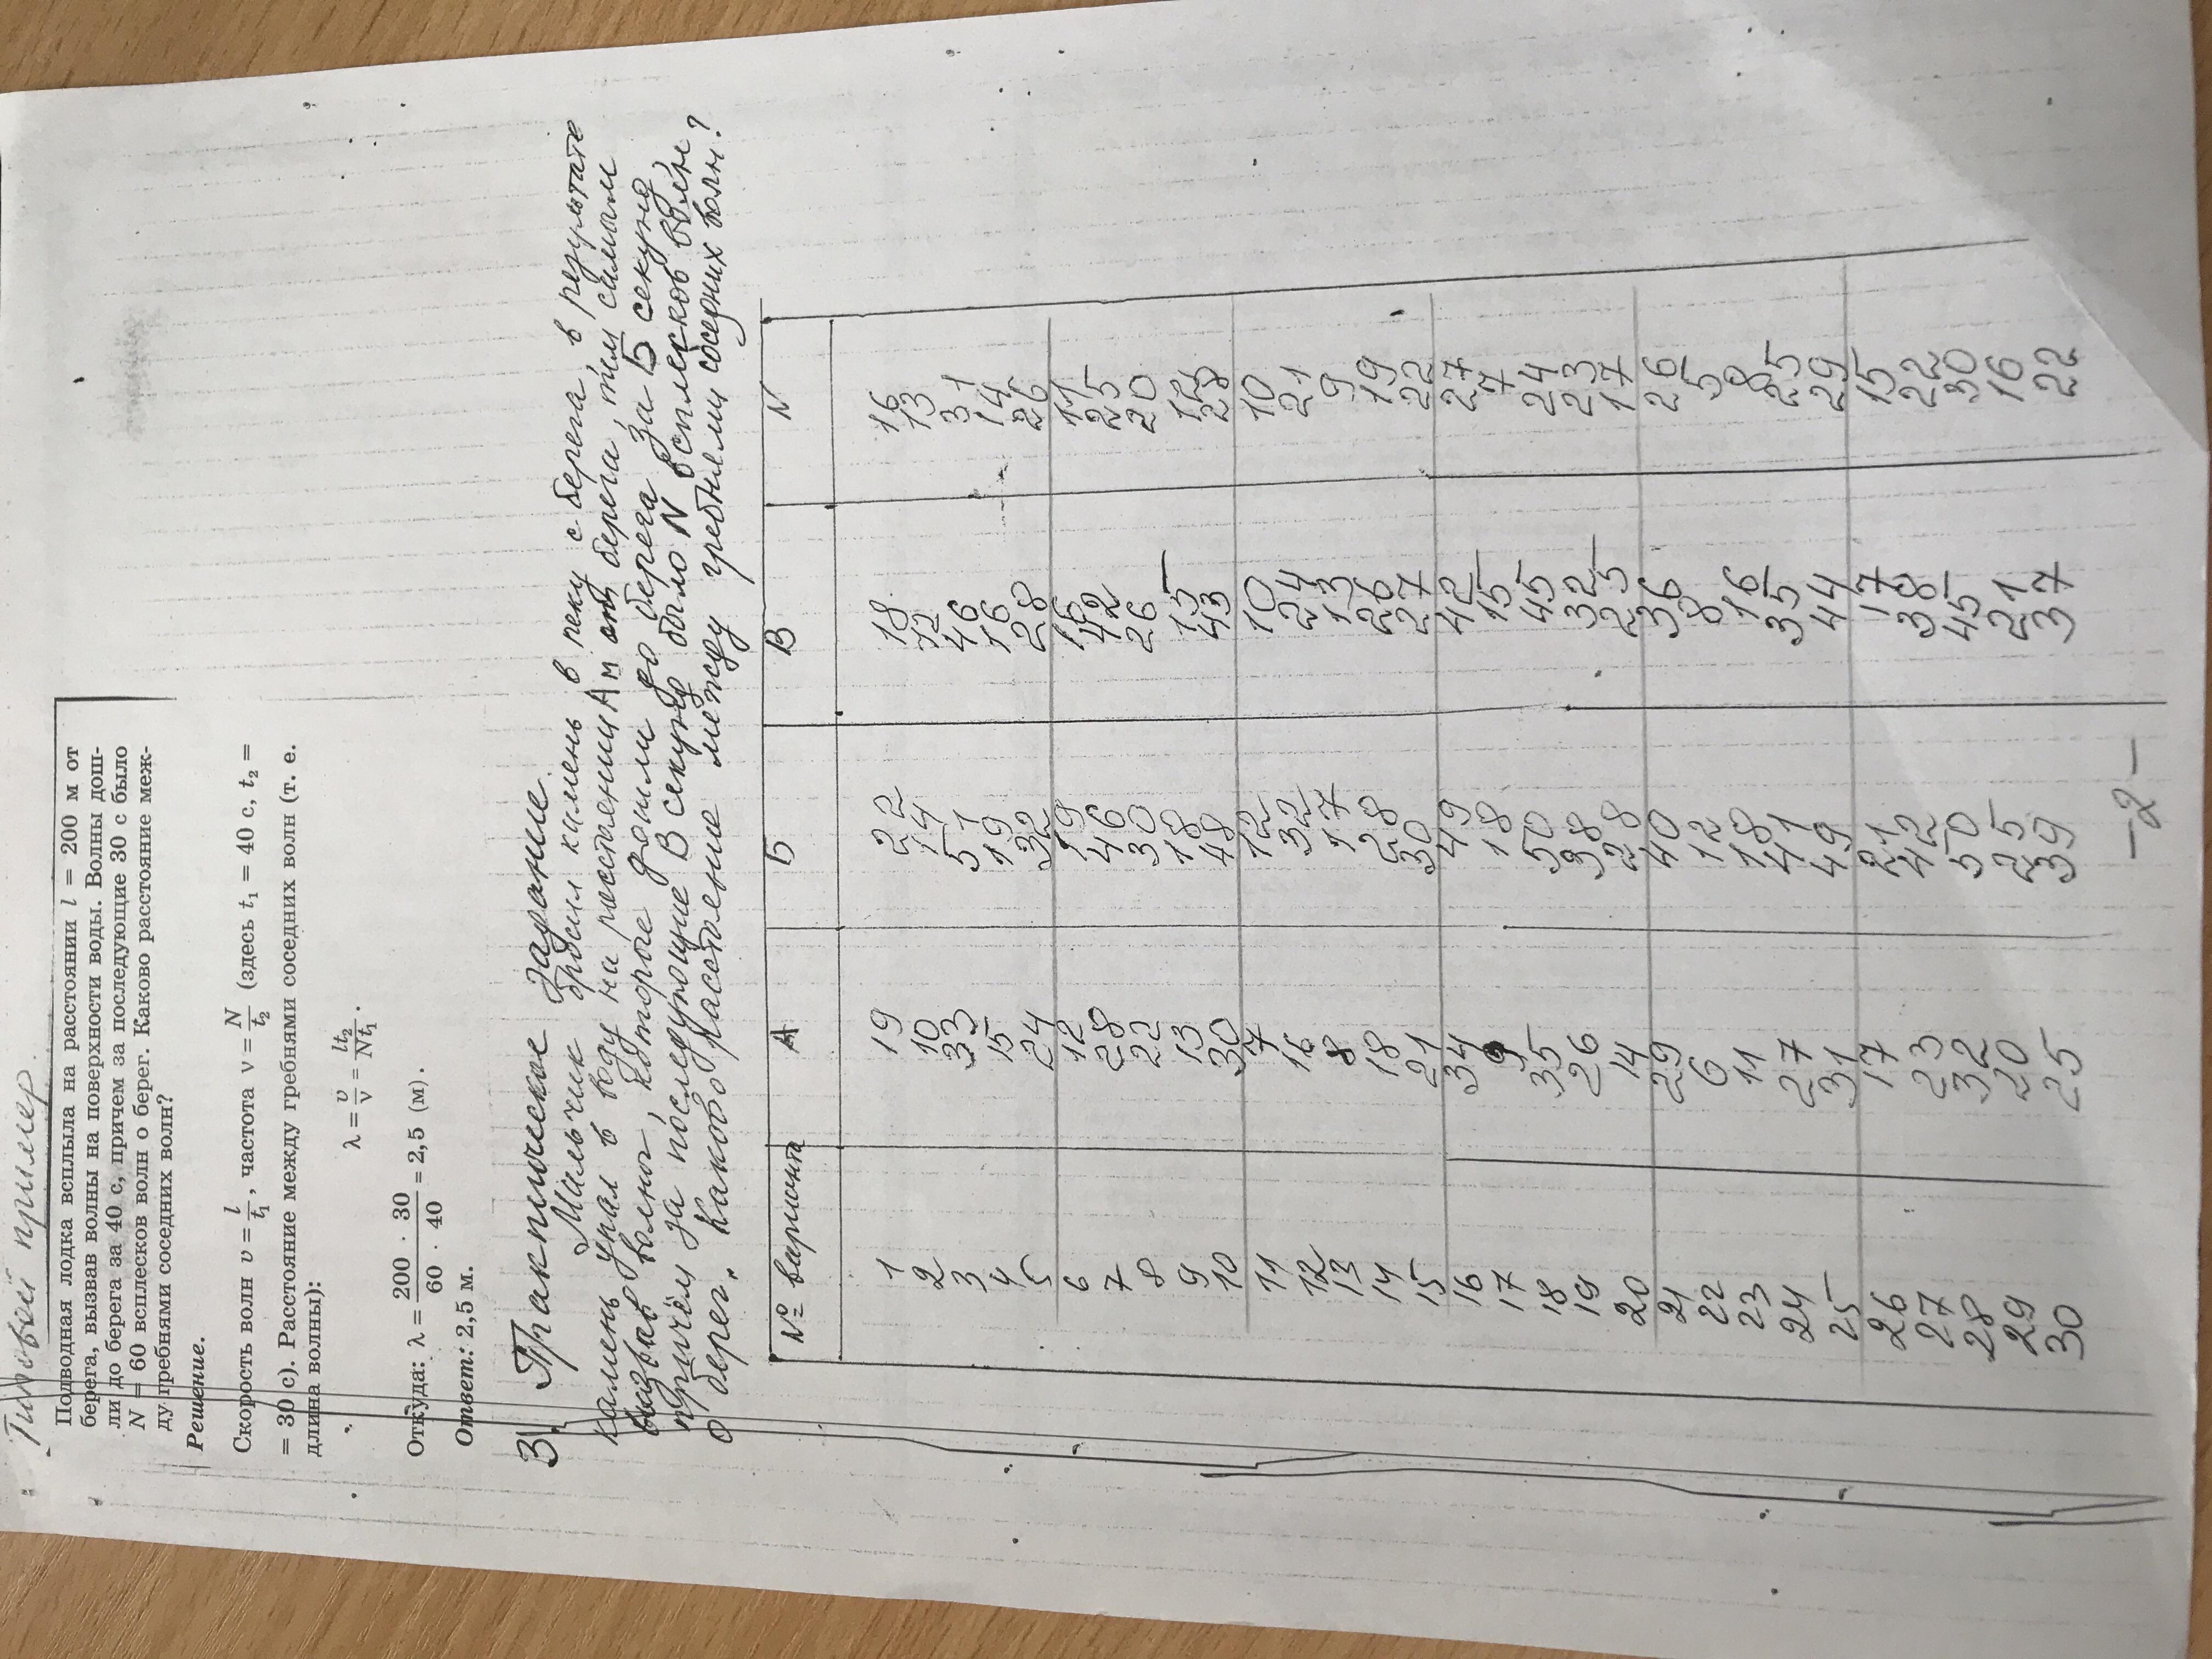 Типовой пример.
Подводная лодка всплыла на расстоянии l = 200 м от
берега, вызвав волны на поверхности воды. Волны дош-
ли до берега за 40 с, причем за последующие 30 с было
N = 60 всплесков волн о берег. Каково расстояние меж-
ду гребнями соседних волн?
Решение.
Скорость волн υ = l/t₁, частота ν = N/t₂ (здесь t₁ = 40 с, t₂ =
= 30 с). Расстояние между гребнями соседних волн (т. е.
длина волны):
λ = υ/ν = lt₂/Nt₁.
Откуда: λ = 200 · 30/60 · 40 = 2,5 (м).
Ответ: 2,5 м.
3. Практическое задание.
Мальчик бросил камень в реку с берега, в результате
камень упал в воду на расстоянии А м от берега, тем самым
вызвав волны, которые дошли до берега за Б секунд
причём за последующие В секунд было N всплесков волн
о берег. Каково расстояние между гребнями соседних волн?
№ варианта А Б В N
1 19 22 18 16
2 10 14 12 13
3 33 51 46 31
4 15 19 16 14
5 24 32 28 26
6 12 19 16 11
7 28 46 42 25
8 22 30 26 20
9 13 18 15 12
10 30 48 43 28
11 7 12 10 10
12 16 32 24 21
13 8 17 13 9
14 18 28 26 19
15 21 30 27 22
16 34 49 42 27
17 9 18 15 7
18 35 50 45 24
19 26 38 32 23
20 14 28 25 17
21 29 40 36 26
22 6 12 8 5
23 11 18 16 8
24 27 41 35 25
25 31 49 44 29
26 17 21 17 15
27 23 42 38 22
28 32 50 45 30
29 20 25 21 16
30 25 39 37 22
-2-